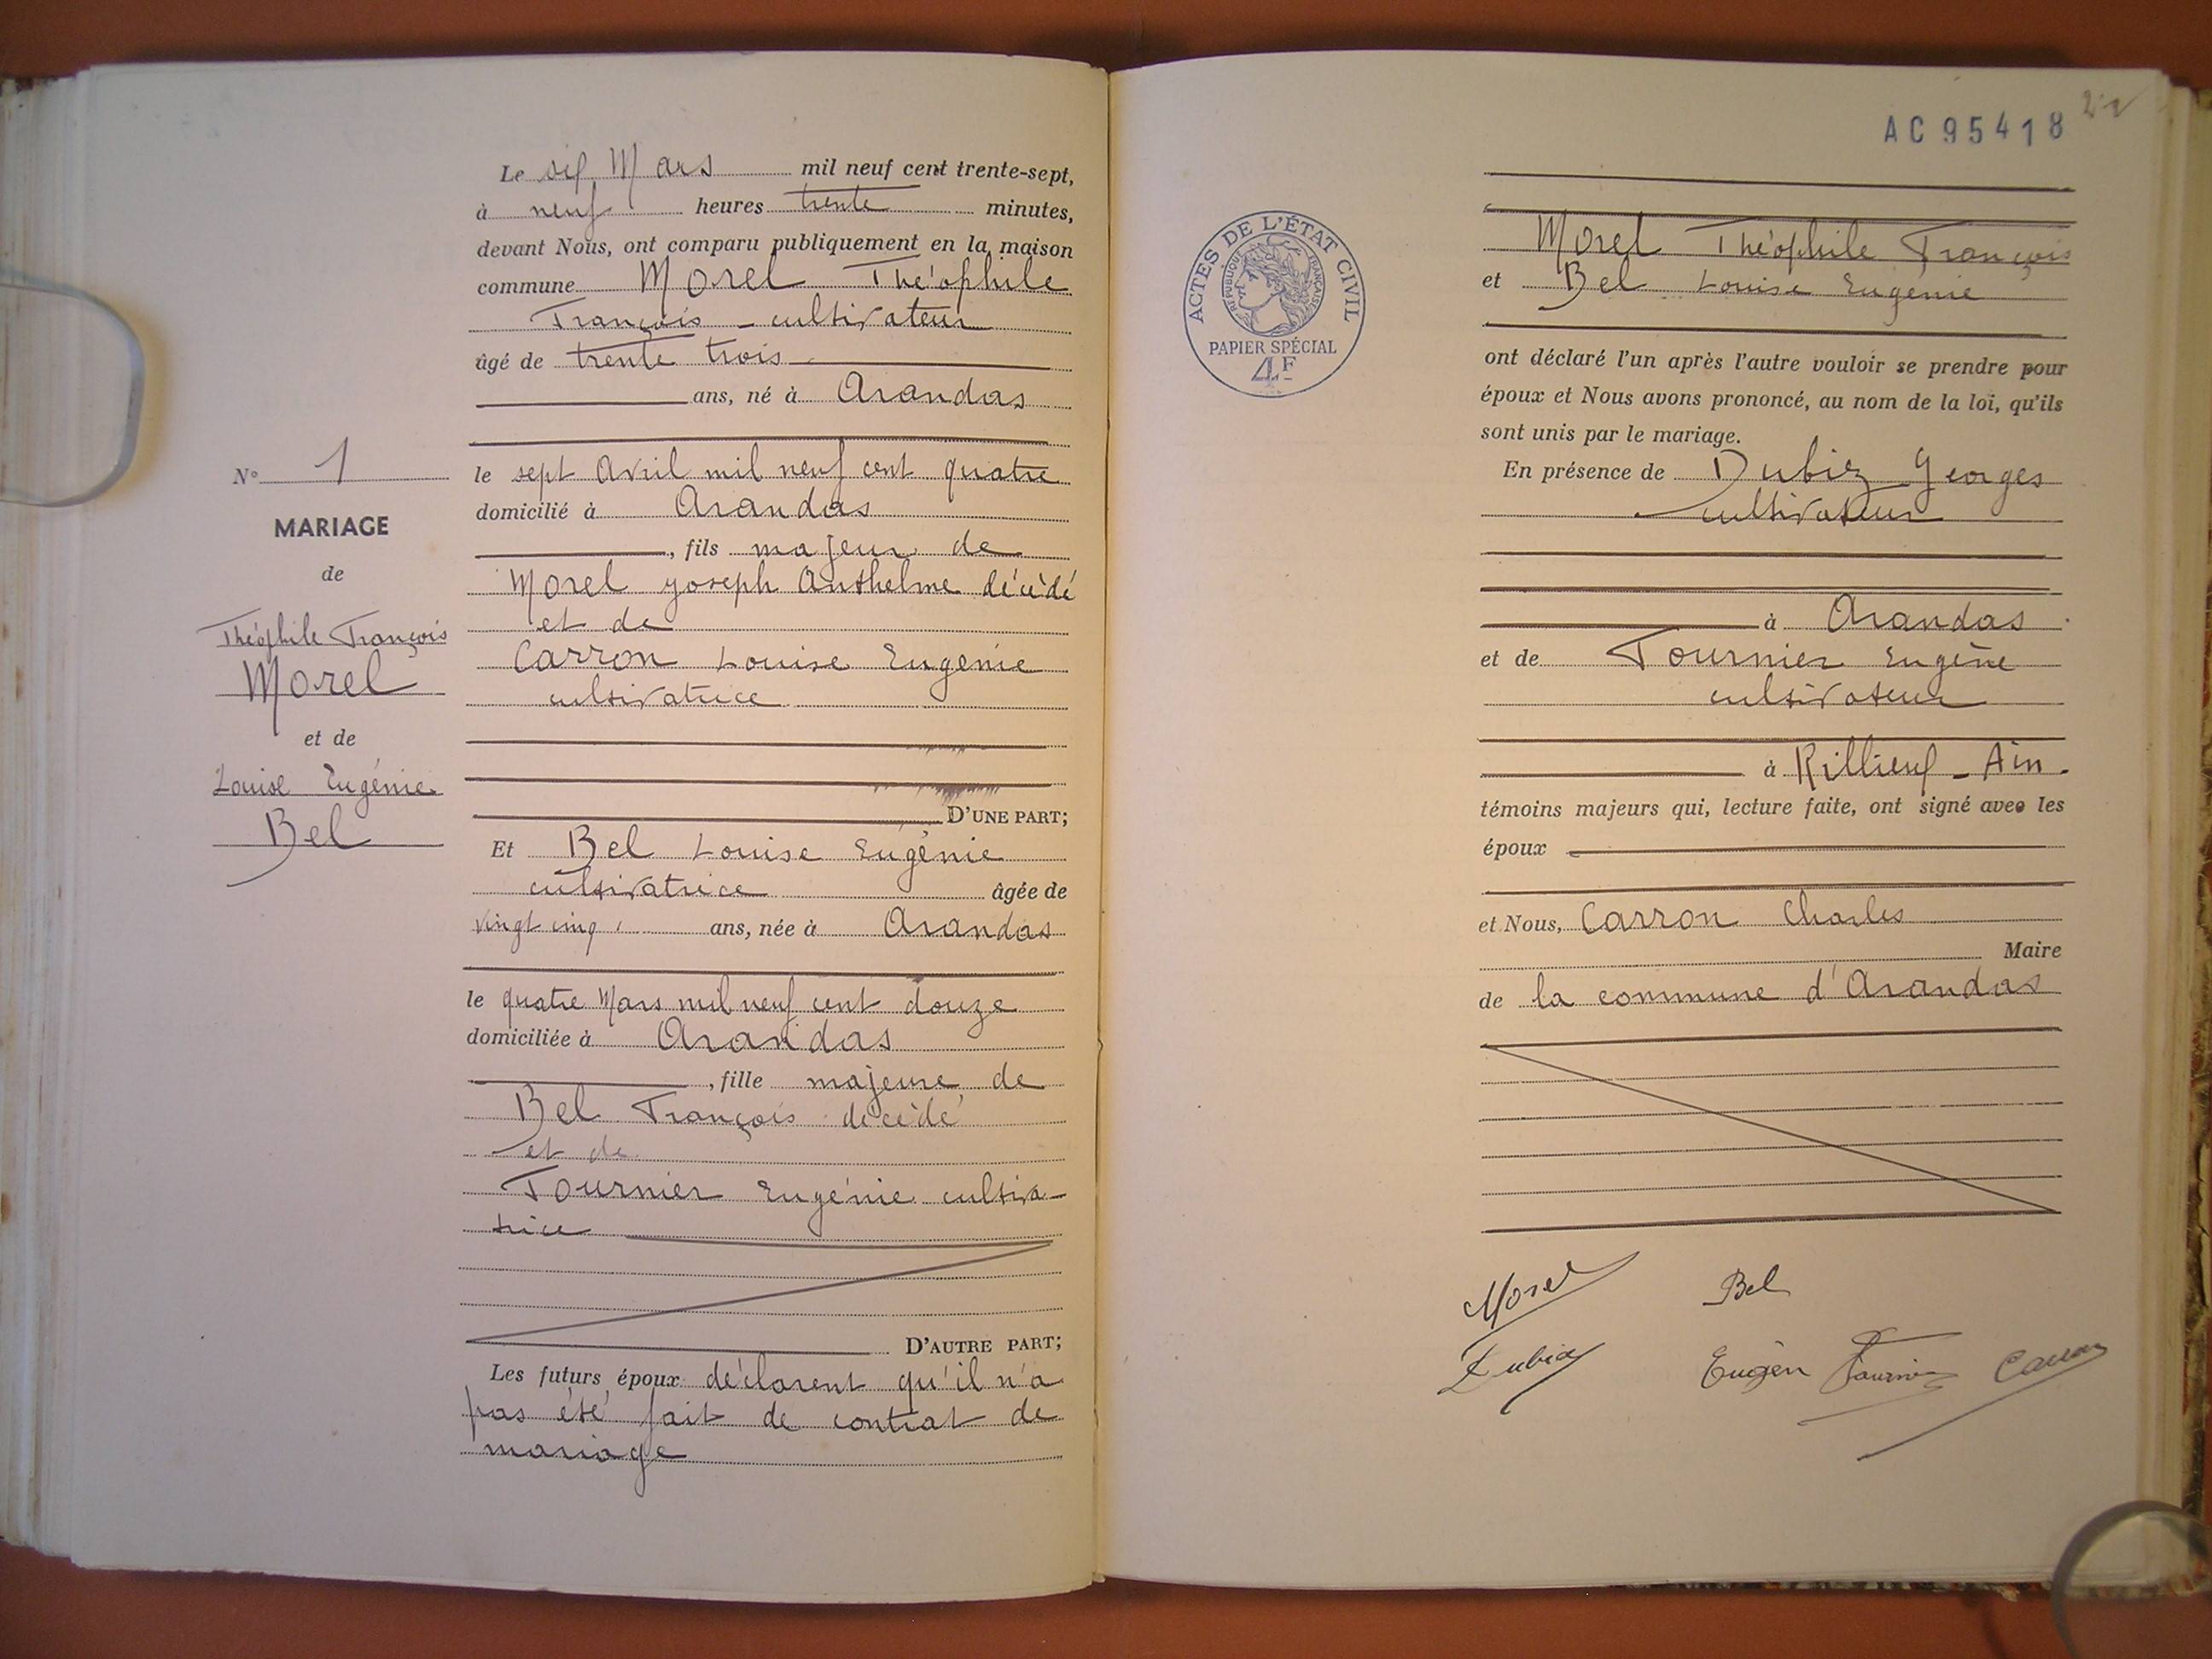 Le six Mars mil neuf cent trente-sept,
à neuf heures trente minutes,
devant Nous, ont comparu publiquement en la maison
commune Morel Théophile
François - cultivateur
âgé de trente trois
ans, né à Arandas
N° 1
le sept Avril mil neuf cent quatre
domicilié à Arandas
MARIAGE
de
Théophile François
Morel
et de
Louise Eugénie
Bel
, fils majeur de
Morel Joseph Anthelme décédé
et de
Carron Louise Eugénie
cultivatrice
D'UNE PART;
Et Bel Louise Eugénie
cultivatrice âgée de
vingt cinq ans, née à Arandas
le quatre Mars mil neuf cent douze
domiciliée à Arandas
, fille majeure de
Bel François décédé
et de
Tournier Eugénie cultiva-
trice
D'AUTRE PART;
Les futurs époux déclarent qu'il n'a
pas été fait de contrat de
mariage
AC 95418
ACTES DE L'ÉTAT CIVIL
RÉPUBLIQUE FRANÇAISE
PAPIER SPÉCIAL
4F
Morel Théophile François
et Bel Louise Eugénie
ont déclaré l'un après l'autre vouloir se prendre pour
époux et Nous avons prononcé, au nom de la loi, qu'ils
sont unis par le mariage.
En présence de Dubiez Georges
cultivateur
à Arandas
et de Tournier Eugène
cultivateur
à Rillieux - Ain.
témoins majeurs qui, lecture faite, ont signé avec les
époux
et Nous, Carron Charles
Maire
de la commune d'Arandas
Morel Bel
Eugèn Carron